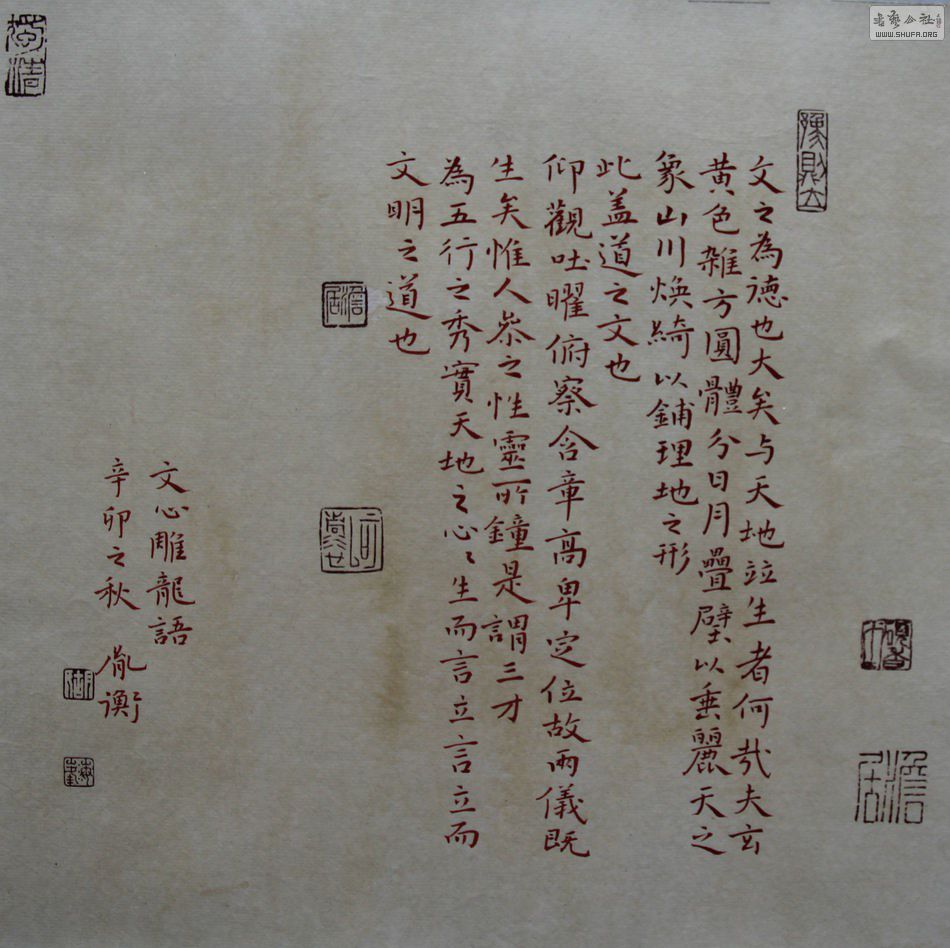 豫則立
文之為德也大矣与天地竝生者何哉夫玄
黄色雜方圓體分日月疊璧以垂麗天之
象山川煥綺以鋪理地之形
此盖道之文也
仰觀吐曜俯察含章高卑定位故兩儀既
生矣惟人叅之性靈所鐘是謂三才
為五行之秀實天地之心〻生而言立言立而
文明之道也
文心雕龍語
辛卯之秋 胤衡
澹居
澹居
WWW.SHUFA.ORG